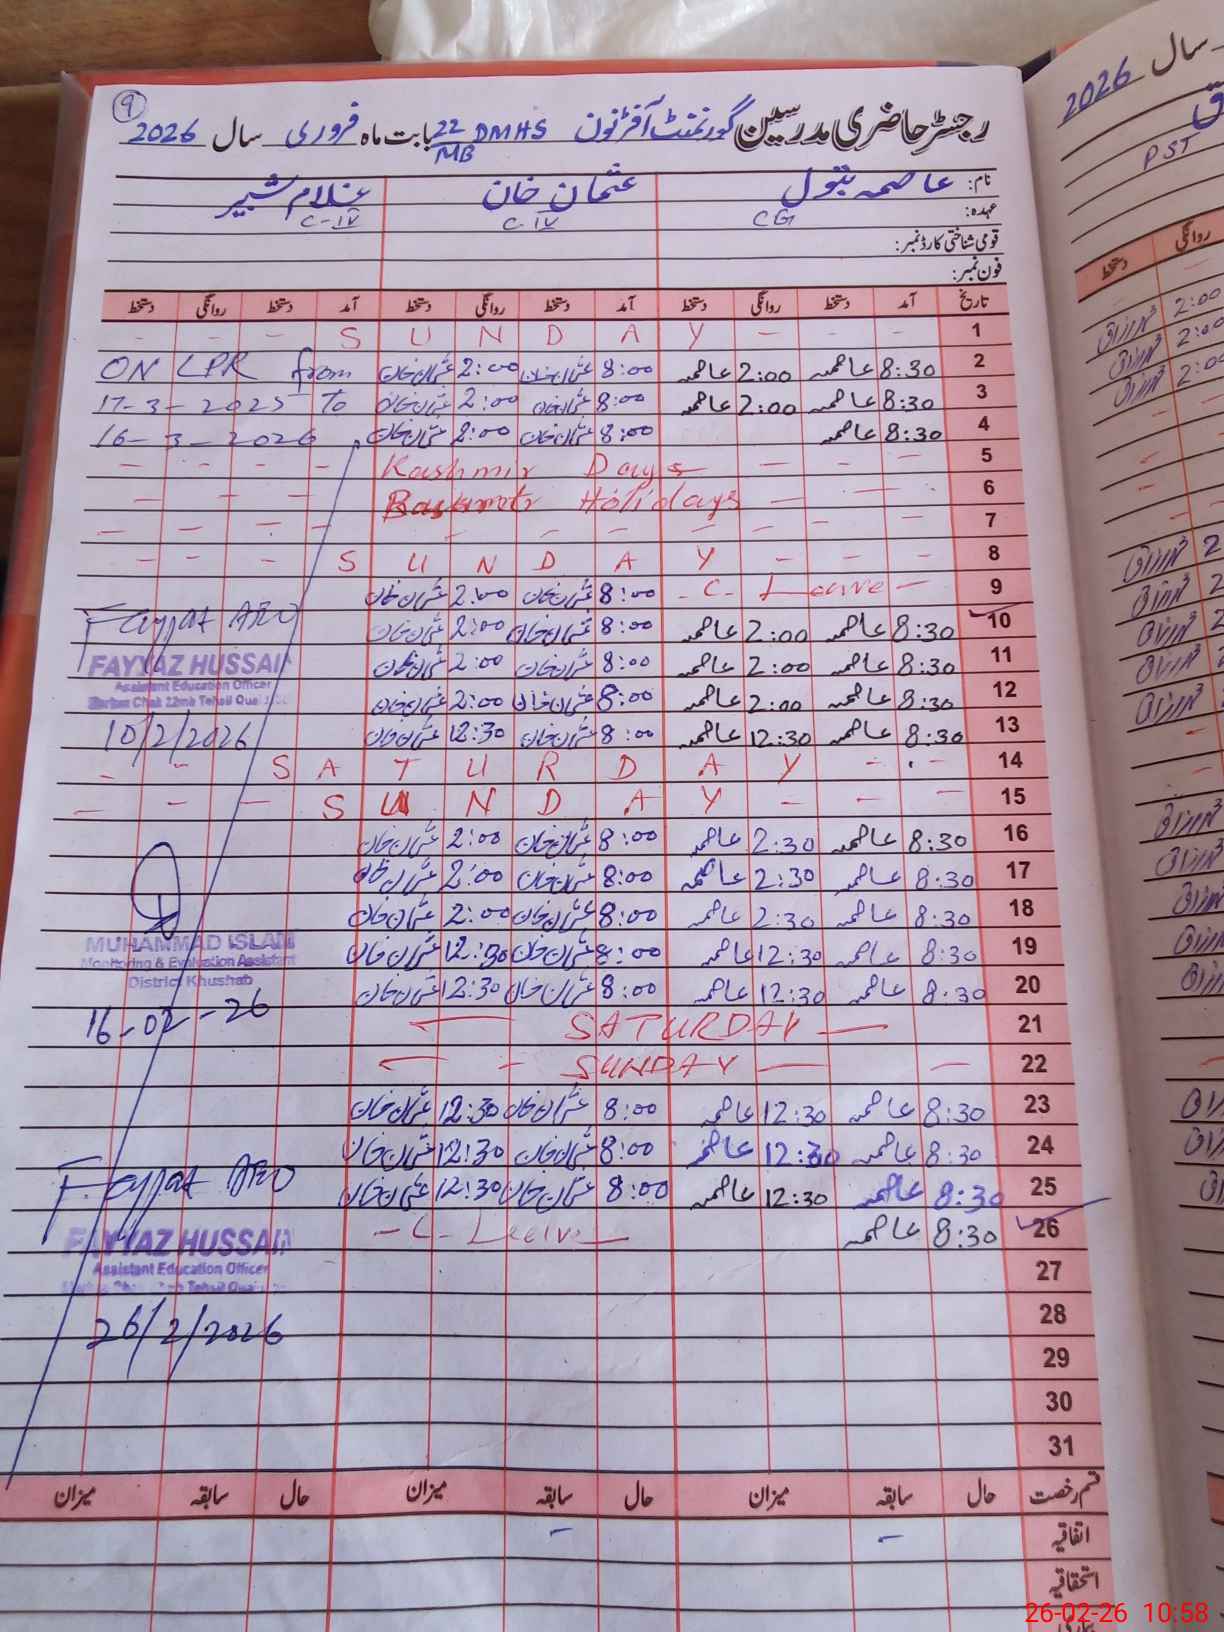 9
رجسٹر حاضری مدرسین گورنمنٹ آفٹرنون DMHS 22 MB بابت ماہ فروری سال 2026
نام: عاصمہ بتول عثمان خان غلام شبیر
عہدہ: CG C-IV C-IV
قومی شناختی کارڈ نمبر:
فون نمبر:
تاریخ آمد دستخط روانگی دستخط آمد دستخط روانگی دستخط آمد دستخط روانگی دستخط
1 S U N D A Y
2 8:30 عاصمہ 2:00 عاصمہ 8:00 عثمان خان 2:00 عثمان خان ON LPR from
3 8:30 عاصمہ 2:00 عاصمہ 8:00 عثمان خان 2:00 عثمان خان 17-3-2025 To
4 8:30 عاصمہ 8:00 عثمان خان 2:00 عثمان خان 16-3-2026
5 Kashmir Days
6 Holidays
7
8 S U N D A Y
9 - C - Leave - 8:00 عثمان خان 2:00 عثمان خان
10 8:30 عاصمہ 2:00 عاصمہ 8:00 عثمان خان 2:00 عثمان خان Fayyaz AEO
11 8:30 عاصمہ 2:00 عاصمہ 8:00 عثمان خان 2:00 عثمان خان FAYYAZ HUSSAIN
Assistant Education Officer
12 8:30 عاصمہ 2:00 عاصمہ 8:00 عثمان خان 2:00 عثمان خان Markaz Chak 22mb Tehsil
13 8:30 عاصمہ 12:30 عاصمہ 8:00 عثمان خان 12:30 عثمان خان 10/2/2026
14 S A T U R D A Y
15 S U N D A Y
16 8:30 عاصمہ 2:30 عاصمہ 8:00 عثمان خان 2:00 عثمان خان
17 8:30 عاصمہ 2:30 عاصمہ 8:00 عثمان خان 2:00 عثمان خان
18 8:30 عاصمہ 2:30 عاصمہ 8:00 عثمان خان 2:00 عثمان خان
19 8:30 عاصمہ 12:30 عاصمہ 8:00 عثمان خان 12:30 عثمان خان MUHAMMAD ISLAM
Monitoring & Evaluation Assistant
20 8:30 عاصمہ 12:30 عاصمہ 8:00 عثمان خان 12:30 عثمان خان District Khushab
21 SATURDAY 16-02-26
22 SUNDAY
23 8:30 عاصمہ 12:30 عاصمہ 8:00 عثمان خان 12:30 عثمان خان
24 8:30 عاصمہ 12:30 عاصمہ 8:00 عثمان خان 12:30 عثمان خان
25 8:30 عاصمہ 12:30 عاصمہ 8:00 عثمان خان 12:30 عثمان خان Fayyaz AEO
26 8:30 عاصمہ - C - Leave FAYYAZ HUSSAIN
27 Assistant Education Officer
28 26/2/2026
29
30
31
قسم رخصت حال سابقہ میزان حال سابقہ میزان حال سابقہ میزان
اتفاقیہ - -
استحقاقیہ
سال 2026
PST
روانگی دستخط
2:00
2:00
2:00
26-02-26 10:58